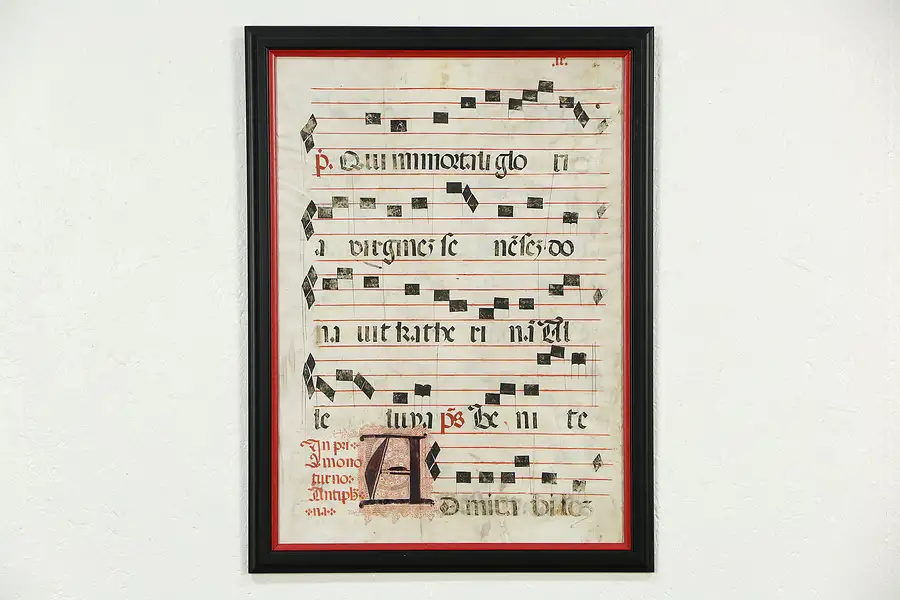 .ix.
p̄. Qui immortali glo ri
a virginez se nēsez do
na uit kathe ri nā Al
le luya p̄s Ve ni te
In pri
mo no
turno
Antiph
na
A
D mira bilos